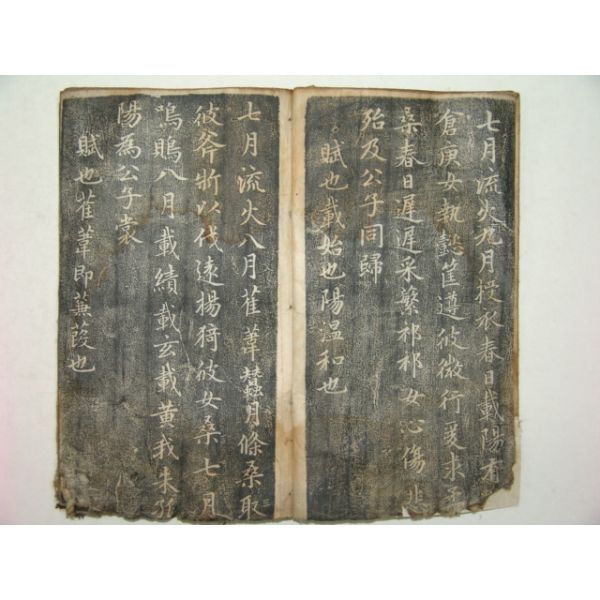 七月流火九月授衣春日載陽有
倉庚女執懿筐遵彼微行爰求柔
桑春日遲遲采蘩祁祁女心傷悲
殆及公子同歸
賦也載始也陽温和也
七月流火八月萑葦蠶月條桑取
彼斧斨以伐遠揚猗彼女桑七月
鳴鵙八月載績載玄載黄我朱孔
陽為公子裳
賦也萑葦即蒹葭也